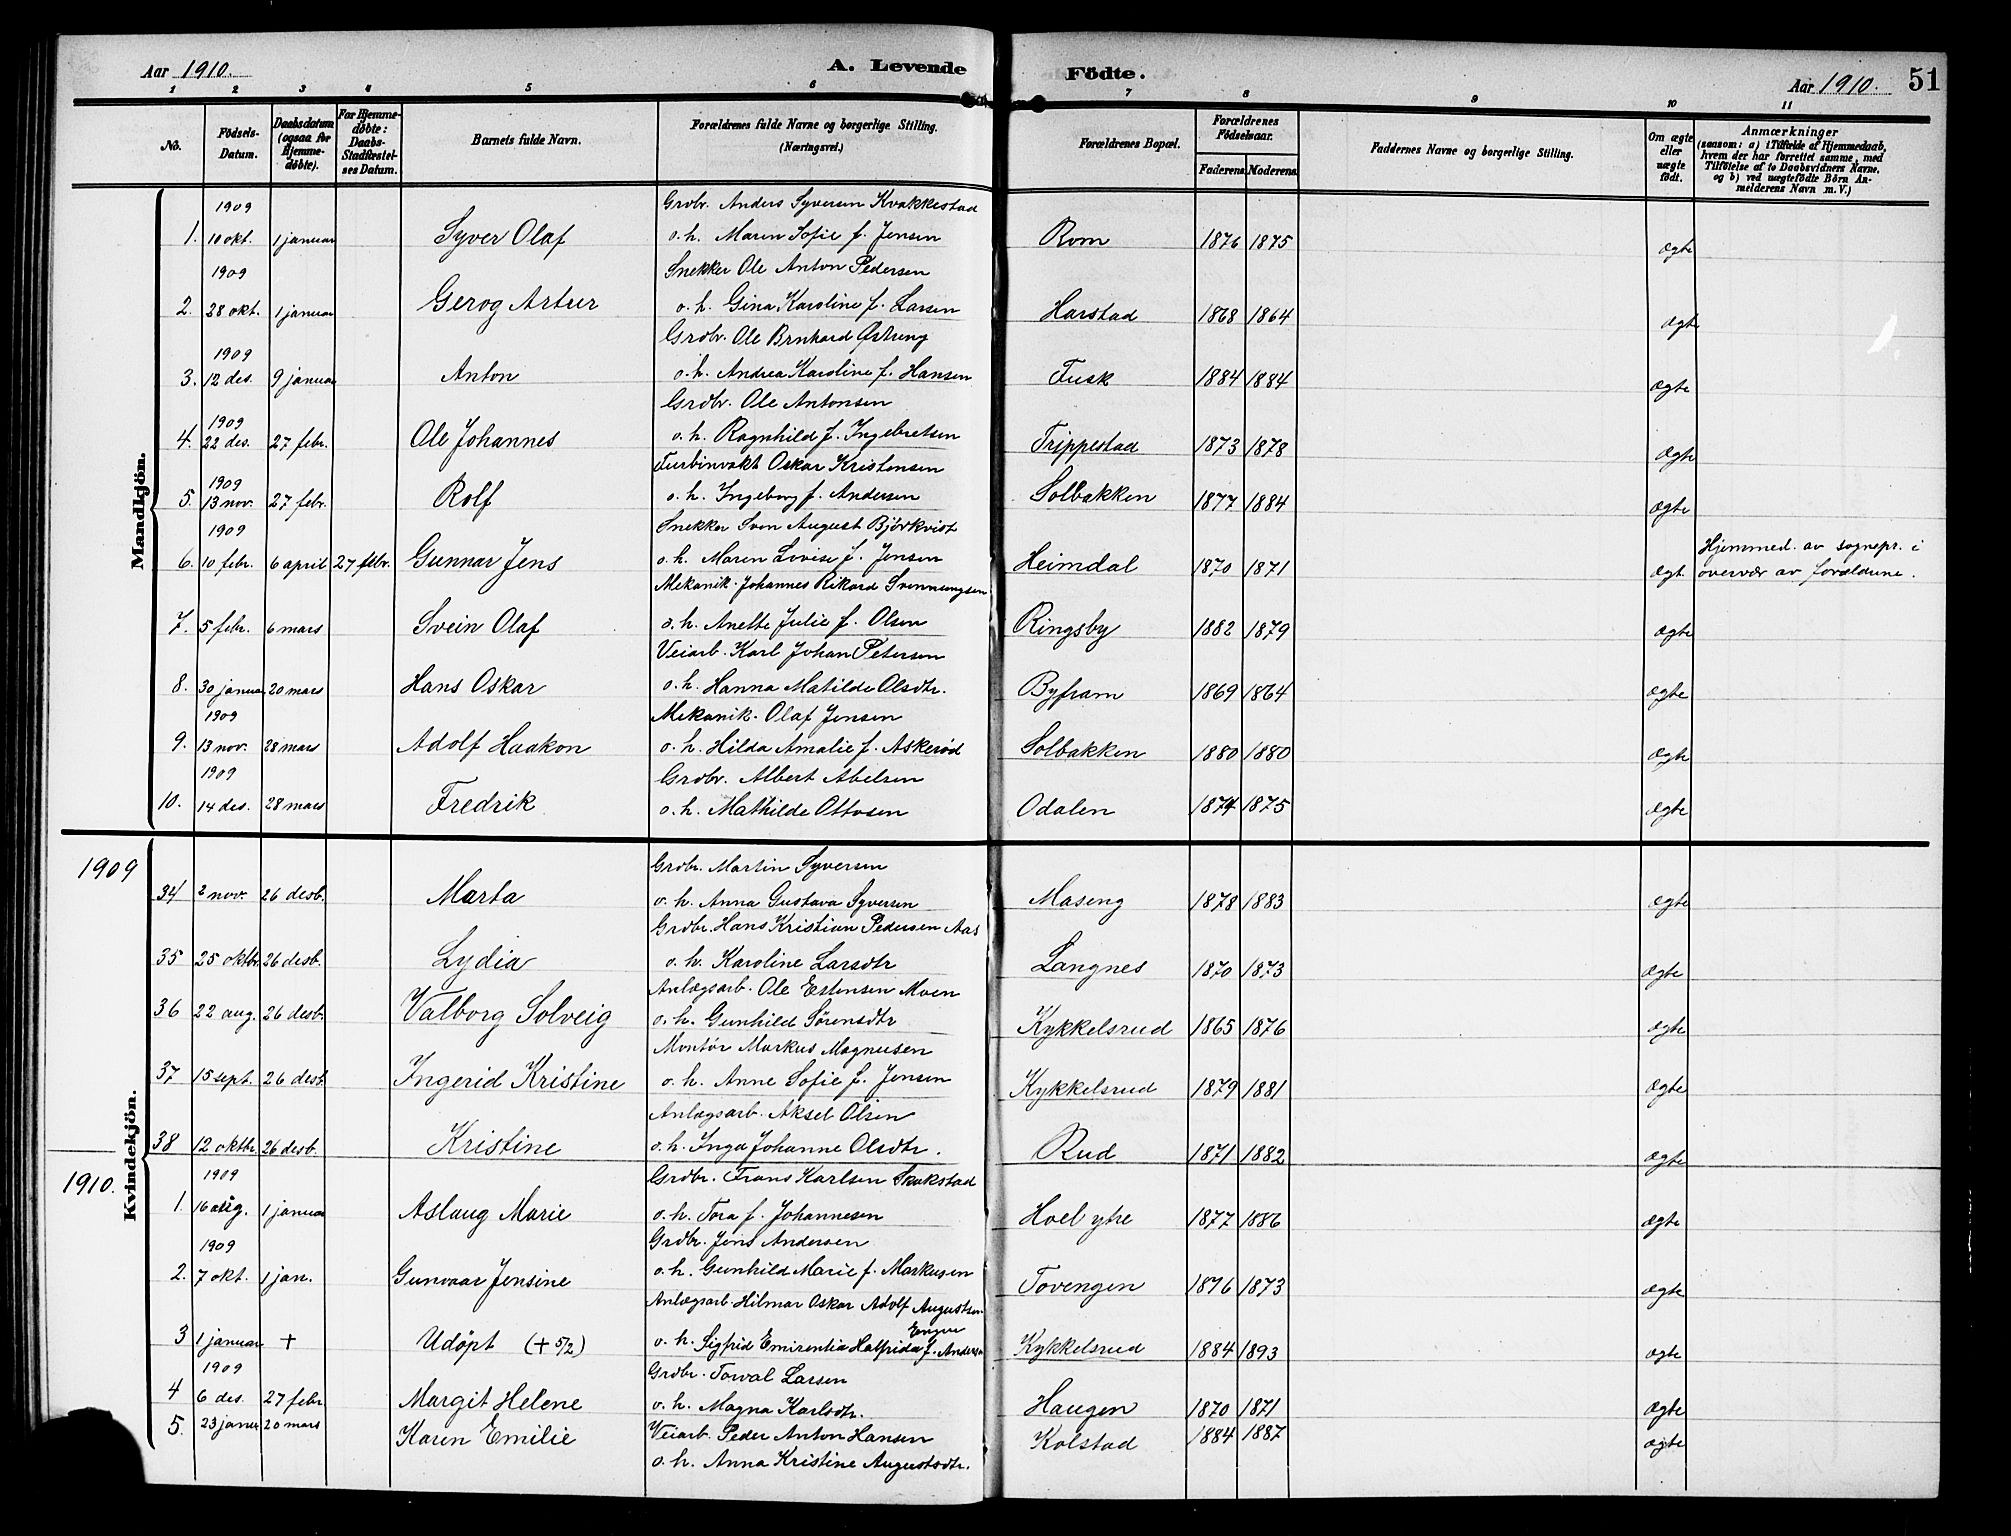 Aar 1910. A. Levende Födte. Aar 1910. 51
1 2 3 4 5 6 7 8 9 10 11
No. Födsels-Datum. Daabsdatum (ogsaa for Hjemme-döbte). For Hjemme-döbte: Daabs-Stadfæstel-ses Datum. Barnets fulde Navn. Forældrenes fulde Navne og borgerlige Stilling. (Næringsvei.) Forældrenes Bopæl. Forældrenes Födselsaar. Faderens Moderens Faddernes Navne og borgerlige Stilling. Om ægte eller uægte födt. Anmærkninger (saasom: a) i Tilfælde af Hjemmedaab, hvem der har forrettet samme, med Tilföielse af to Daabsvidners Navne, og b) ved uægtefödte Börn An-melderens Navn m. V.)
Mandkjön.
1909 Grdbr. Anders Syversen Kvakkestad
1. 10 okt. 1 januar Syver Olaf o. h. Maren Sofie f. Jensen Rom 1876 1875 ægte
1909 Snekker Ole Anton Pedersen
2. 28 okt. 1 januar Gerog Artur o. h. Gina Karoline f. Larsen Harstad 1868 1864 ægte
Grdbr. Ole Brnhard Østreng
1909
3. 12 des. 9 januar Anton o. h. Andrea Karoline f. Hansen Fusk 1884 1884 ægte
Grdbr. Ole Antonsen
1909
4. 22 des. 27 febr. Ole Johannes o. h. Ragnhild f. Ingebretsen Trippestad 1873 1878 ægte
Turbinvakt Oskar Kristensen
1909
5. 13 nov. 27 febr. Rolf o. h. Ingeborg f. Andersen Solbakken 1877 1884 ægte
1909 Snekker Sven August Bjørkvist
6. 10 febr. 6 april 27 febr. Gunnar Jens o. h. Maren Lovise f. Jensen Heimdal 1870 1871 ægt. Hjemmed. av sognepr. i overvær av forældrene.
Mekanik. Johannes Rikard Svennungsen
7. 5 febr. 6 mars Svein Olaf o. h. Anette Julie f. Olsen Ringsby 1882 1879 ægte
Veiarb. Karl Johan Petersen
8. 30 januar 20 mars Hans Oskar o. h. Hanna Matilde Olsdtr. Byfram 1869 1864 ægte
1909 Mekanik. Olaf Jensen
9. 13 nov. 28 mars Adolf Haakon o. h. Hilda Amalie f. Askerød Solbakken 1880 1880 ægte
1909 Grdbr. Albert Abelsen
10. 14 des. 28 mars Fredrik o. h. Mathilde Ottosen Odalen 1874 1875 ægte
Kvindekjön.
1909 Grdbr. Martin Syversen
34 2 nov. 26 desb. Marta o. h. Anna Gustava Syversen Maseng 1878 1883 ægte
Grdbr. Hans Kristian Pedersen Aas
35 25 oktbr. 26 desb. Lydia o. h. Karoline Larsdtr Langnes 1870 1873 ægte
Anlægsarb. Ole Estensen Moen
36 22 aug. 26 desb. Valborg Solveig o. h. Gunhild Sørensdtr Kykkelsrud 1865 1876 ægte
Montør Markus Magnusen
37 15 sept. 26 desb Ingerid Kristine o. h. Anne Sofie f. Jensen Kykkelsrud 1879 1881 ægte
Anlægsarb. Aksel Olsen
38 12 oktbr. 26 desb. Kristine o. h. Inga Johanne Olsdtr. Rud 1871 1882 ægte
1910. 1909 Grdbr. Frans Karlsen Skakstad
1. 16 aug. 1 januar Aslaug Marie o. h. Tora f. Johannesen Hoel ytre 1877 1886 ægte
1909 Grdbr. Jens Andersen
2. 7 okt. 1 jan. Gunvaar Jensine o. h. Gunhild Marie f. Markusen Tovengen 1876 1873 ægte
Anlægsarb. Hilmar Oskar Adolf Augustsen
3 1 januar + Udöpt (+ 5/2) o. h. Sigfrid Emirentia Halfrida f. Andersen Kykkelsrud 1884 1893 ægte
1909 Grdbr. Torval Larsen
4 6 des. 27 febr. Margit Helene o. h. Magna Karlsdtr. Haugen 1870 1871 ægte
5. 23 januar 20 mars Karen Emilie Veiarb. Peder Anton Hansen Kolstad 1884 1887 ægte
o. h. Anna Kristine Augustsdtr.